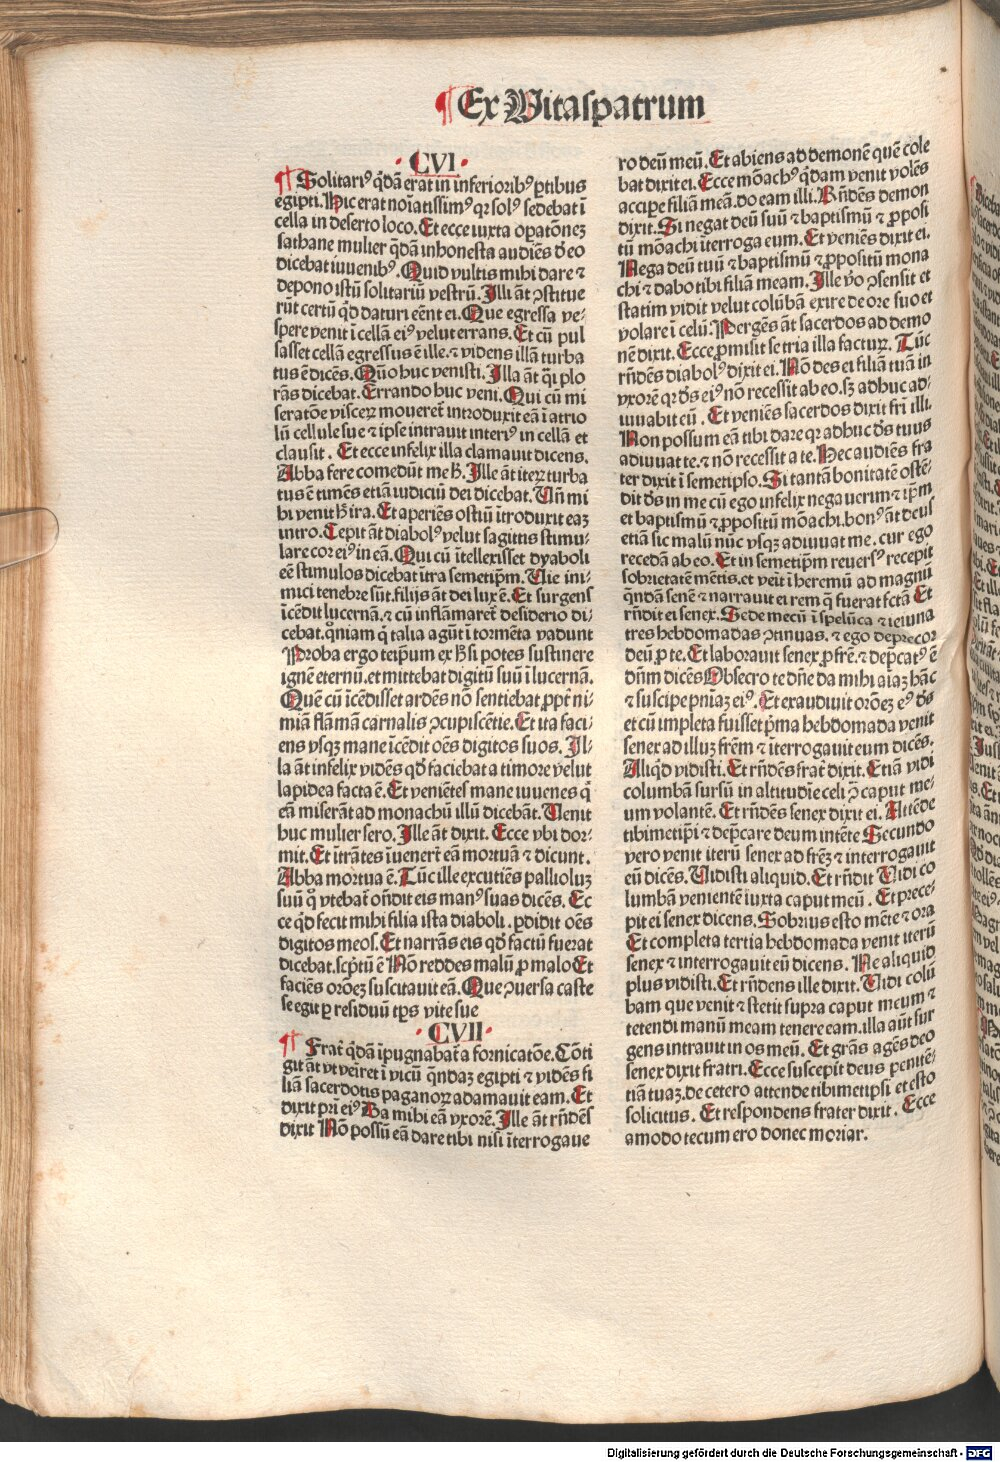 ¶ Ex Vitaspatrum
·CVI·
¶ Solitariꝰ q̄dā erat in inferioribꝰ ꝑtibus
egipti. Hic erat noīatissimꝰ qr solꝰ sedebat ī
cella in deserto loco. Et ecce iuxta oꝑatōnez
sathane mulier q̄dā inhonesta audiēs d̄ eo
dicebat iuuenibꝰ. Quid vultis mihi dare ⁊
depono istū solitariū vestrū. Illi āt ꝯstitue
rūt certū qd̄ daturi eēnt ei. Que egressa ve⸗
spere venit ī cellā eiꝰ velut errans. Et cū pul
sasset cellā egressus ē ille. ⁊ videns illā turba
tus ē dicēs. Quō huc venisti. Illa āt q̄i plo
rās dicebat. Errando huc veni. Qui cū mi
seratōe viscerꝝ moueret̄ introduxit eā ī atrio
lū cellule sue ⁊ ipse intrauit interiꝰ in cellā et
clausit. Et ecce infelix illa clamauit dicens.
Abba fere comedūt me h̄. Ille āt iterꝝ turba
tus ē timēs etiā iudiciū dei dicebat. Vn̄ mi
hi venit h̄ ira. Et aperiēs ostiū ītroduxit eaꝫ
intro. Cepit āt diabolꝰ velut sagittis stimu⸗
lare cor eiꝰ in eā. Qui cū ītellexisset dyaboli
eē stimulos dicebat ītra semetip̄m. Vie ini⸗
mici tenebre sūt. filijs āt dei lux ē. Et surgens
īcēdit lucernā. ⁊ cū inflāmaret̄ desiderio di⸗
cebat. qm̄iam q̄ talia agūt ī tormēta vadunt
Proba ergo teip̄um ex h̄ si potes sustinere
ignē eternū. et mittebat digitū suū ī lucernā.
Quē cū īcēdisset ardēs nō sentiebat ꝓpt̄ ni⸗
miā flāmā carnalis ꝯcupiscētie. Et ita faci⸗
ens vsqꝫ mane īcēdit oēs digitos suos. Il⸗
la āt infelix vidēs qd̄ faciebat a timore velut
lapidea facta ē. Et veniētes mane iuuenes q̄
eā miserāt ad monachū illū dicebāt. Uenit
huc mulier sero. Ille āt dixit. Ecce vbi dor⸗
mit. Et ītrātes īuenerūt eā mortuā ⁊ dicunt.
Abba mortua ē. Tūc ille excutiēs palliolūꝫ
suū q̊ vtebat̄ on̄dit eis manꝰ suas dicēs. Ec
ce qd̄ fecit mihi filia ista diaboli. ꝑdidit oēs
digitos meos. Et narrās eis qd̄ factū fuerat
dicebat. scp̄tū ē Nō reddes malū ꝓ malo Et
faciēs orōeꝫ suscitauit eā. Que ꝯuersa caste
se egit ꝑ residuū tp̄s vite sue
·CVII·
¶ Frat̄ q̄dā īpugnabat̄ a fornicatōe. Cōti
git āt vt veīret ī vicū q̄ndaꝫ egipti ⁊ vidēs fi
liā sacerdotis paganoꝝ adamauit eam. Et
dixit pr̄i eiꝰ Da mihi eā vxorē. Ille āt rn̄dēs
dixit Nō possū eā dare tibi nisi īterrogaue
ro deū meū. Et abiens ad demonē quē cole
bat dixit ei. Ecce mōachꝰ q̄dam venit volēs
accipe filiā meā. do eam illi. Rn̄dēs demon
dixit. Si negat deū suū ⁊ baptismū ⁊ ꝓposi
tū mōachi īterroga eum. Et veniēs dixit ei.
Nega deū tuū ⁊ baptismū ⁊ ꝓpositū mona
chi ⁊ dabo tibi filiā meam. Ille v̄o ꝯsensit et
statim vidit velut colūbā exire de ore suo et
volare ī celū. Pergēs āt sacerdos ad demo
nē dixit. Ecce ꝓmisit se tria illa facturꝝ. Tūc
rn̄dēs diabolꝰ dixit ei. Nō des ei filiā tuā in
vxorē qr ds̄ eiꝰ nō recessit ab eo. sꝫ adhuc ad⸗
iuuabit eū. Et veniēs sacerdos dixit fr̄i illi.
Non possum eā tibi dare qr adhuc ds̄ tuus
adiuuat te. ⁊ nō recessit a te. Hec audiēs fra
ter dixit ī semetipso. Si tantā bonitatē ostē⸗
dit ds̄ in me cū ego infelix negauerim ⁊ ip̄m
et baptismū ⁊ ꝓpositū mōachi. bonꝰ āt deus
etiā sic malū nūc vsqꝫ adiuuat me. cur ego
recedā ab eo. Et in semetip̄m reuersꝰ recepit
sobrietatē mētis. et veīt ī heremū ad magnū
q̄ndā senē ⁊ narrauit ei rem q̄ fuerat fctā Et
rn̄dit ei senex. Sede mecū ī spelūca ⁊ ieiuna
tres hebdomadas ꝯtinuas. ⁊ ego deprecor
deū ꝓ te. Et laborauit senex ꝓ fr̄e. ⁊ dep̄catꝰ ē
dn̄m dicēs Obsecro te dn̄e da mihi aīaꝫ hāc
⁊ suscipe pn̄iaꝫ eiꝰ. Et exaudiuit orōeꝫ eꝰ ds̄
et cū impleta fuisset p̄ma hebdomada venit
senex ad illuꝫ fr̄em ⁊ īterrogauit eum dicēs.
Aliqd̄ vidisti. Et rn̄dēs frat̄ dixit. Etiā vidi
columbā sursū in altitudīe celi ꝯ̄ caput me⸗
um volantē. Et rn̄dēs senex dixit ei. Attēde
tibimetip̄i ⁊ dep̄care deum intēte Secundo
vero venit iterū senex ad fr̄eꝫ ⁊ interrogauit
eū dicēs. Vidisti aliquid. Et rn̄dit Vidi co
lumbā venientē iuxta caput meū. Et prece⸗
pit ei senex dicens. Sobrius esto mēte ⁊ ora
Et completa tertia hebdomada venit iterū
senex ⁊ interrogauit eū dicens. Ne aliquid
plus vidisti. Et rn̄dens ille dixit. Vidi colū
bam que venit ⁊ stetit supra caput meum ⁊
tetendi manū meam tenere eam. illa aūt sur
gens intrauit in os meū. Et grās agēs deo
senex dixit fratri. Ecce suscepit deus penitē⸗
tiā tuaꝫ. de cetero attende tibimetipsi et esto
solicitus. Et respondens frater dixit. Ecce
amodo tecum ero donec moriar.
Digitalisierung gefördert durch die Deutsche Forschungsgemeinschaft - DFG